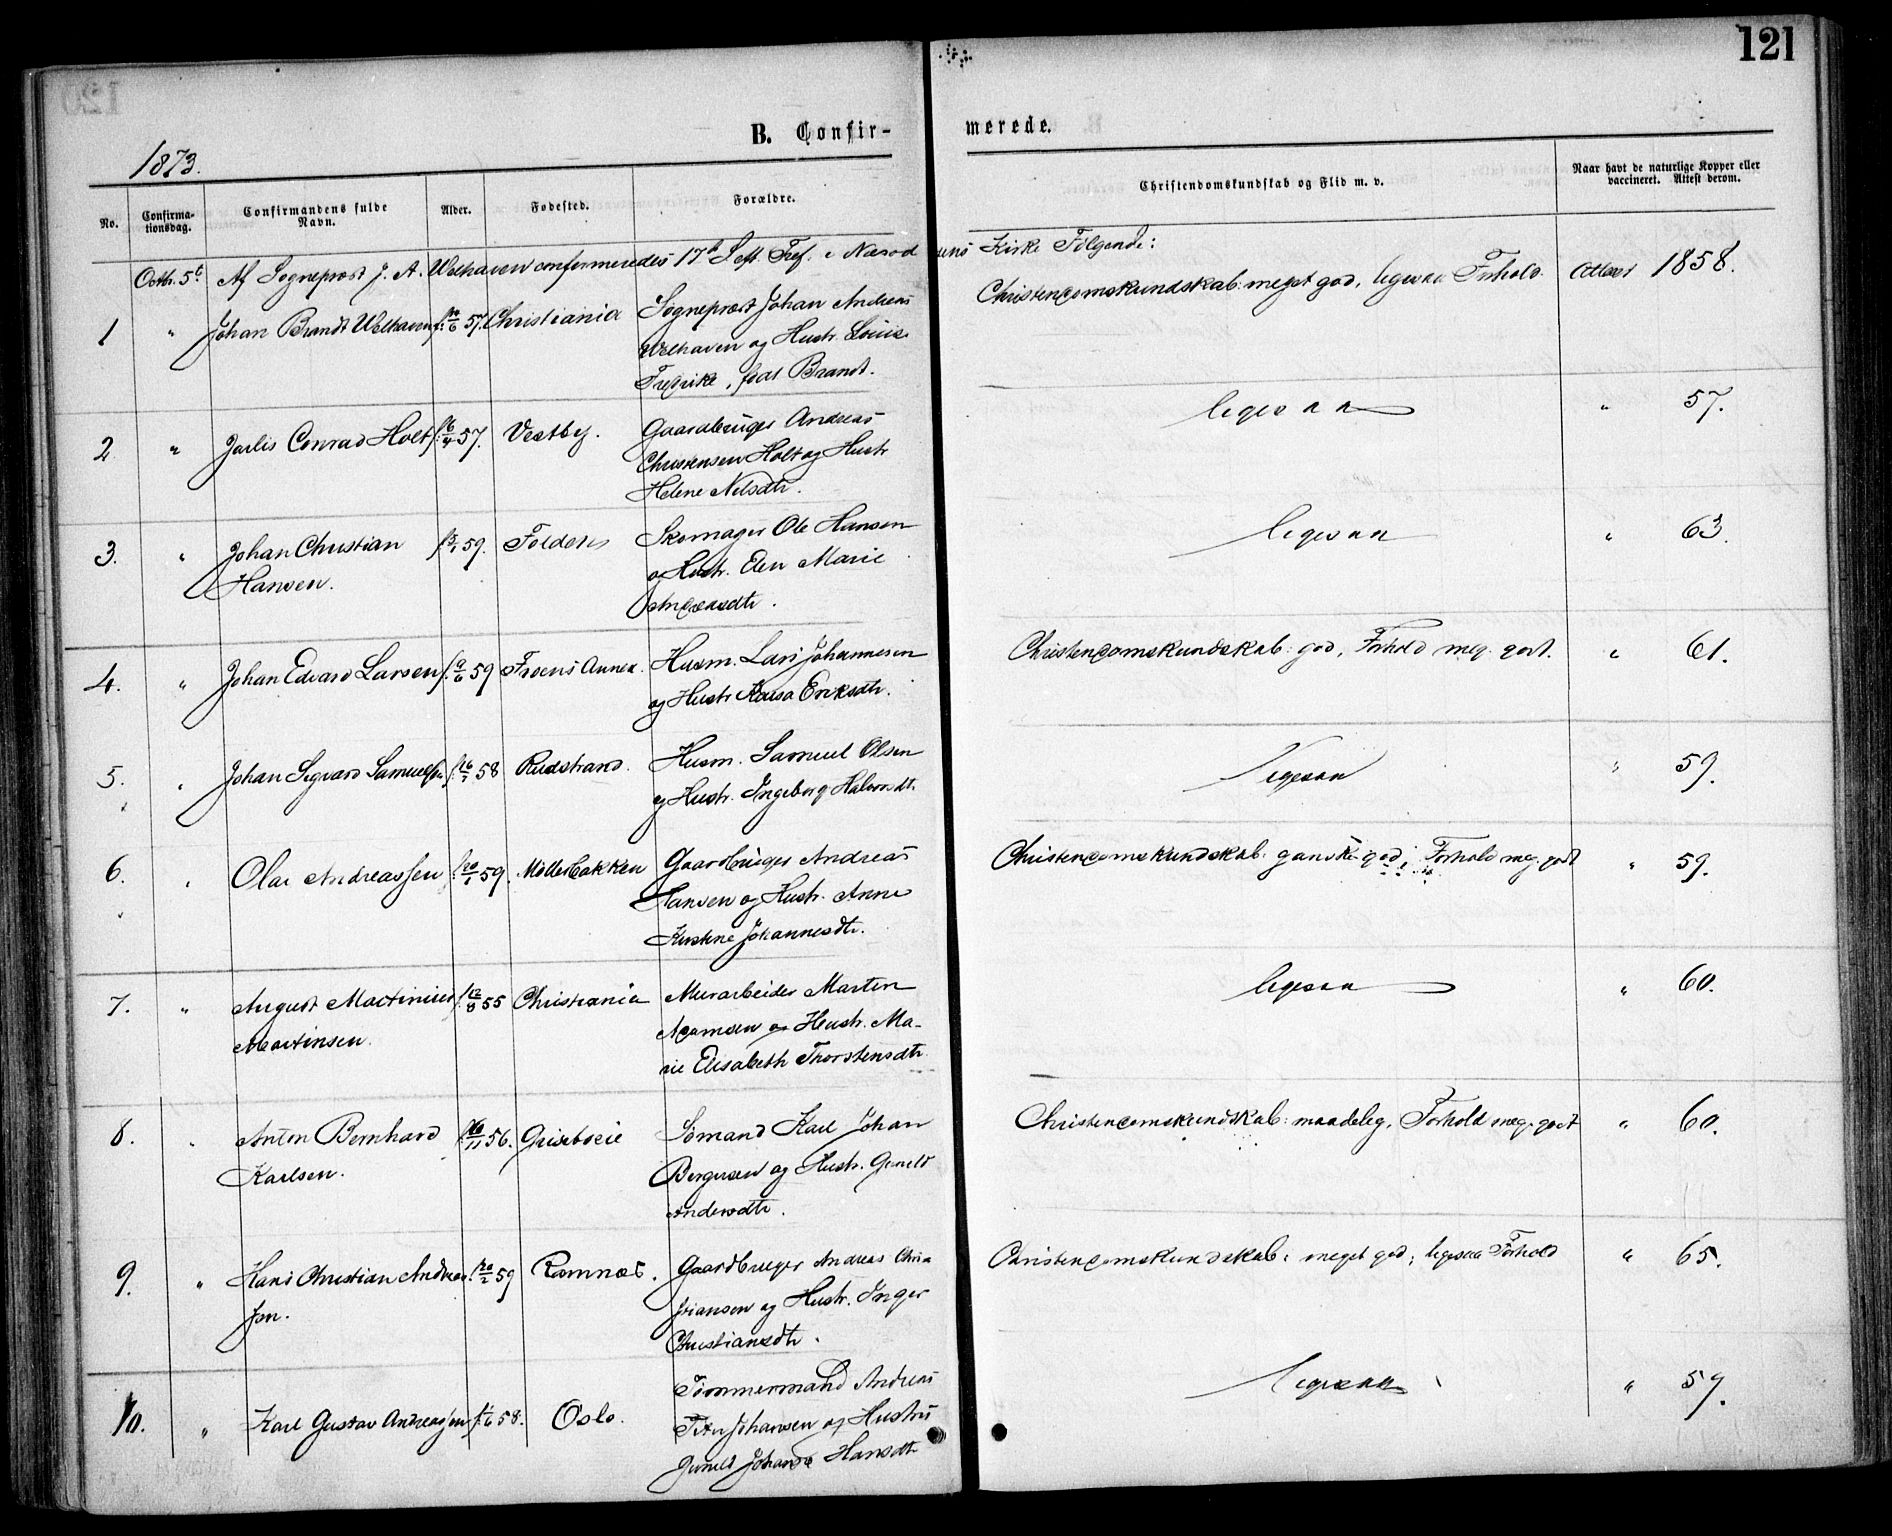 121
B. Confir-
merede.
1873.
No.
Confirma-
tionsdag.
Confirmandens fulde
Navn.
Alder.
Fødested.
Forældre.
Christendomskundskab og Flid m. v.
Naar havt de naturlige Kopper eller
vaccineret. Attest derom.
Octbr. 5t Af Sognepræst J. A. Welhaven confirmeredes 17de S. eft. Tref. i Næsod
dens Kirke Følgende:
1 " Johan Brandt Welhaven f. 57. Christiania Sognepræst Johan Andreas
Welhaven og Hustr. Louise
Fredrike, født Brandt.
Christendomskundskab: meget god, ligesaa Forhold. Attest 1858.
2 " Jarlis Conrad Holt f. 57. Vestby. Gaardbruger Andreas
Christensen Holt og Hustr
Helene Nilsdtr.
ligesaa " 57.
3. " Johan Christian f. 59. Skomager Ole Hansen
Hansen.
og Hustr. Elen Marie
Andreasdtr.
ligesaa " 63.
4. " Johan Edvard Larsen f. 9/6 59 Froens Annex. Husm. Lars Johannesen
og Hustr Eriksdtr.
Christendomskundskab: god, Forhold meg. godt. " 61.
5. " Johan Sigvard Samuels f. 58 Rudstrand. Husm. Samuel Olsen
og Hustr. Ingeborg Halvorsdtr
ligesaa " 59.
6. " Olai Andreassen f. 59. Møllerbakken Gaardbruger Andreas
Hansen og Hustr. Anne
Kirstine Johannesdtr.
Christendomskundskab: ganske god; Forhold meg. godt " 59.
7. " August Martinius f. 12/8 55 Christiania Murarbeider Marten
Martinsen.
Adamsen og Hustr. Ma-
rie Elisabeth Thorstensdtr.
ligesaa " 60.
8. " Anton Bernhard 56. Griseboeie Sømand Karl Johan
Karlsen.
Bergersen og Hustr. Gunild
Andersdtr.
Christendomskundskab: maadelig, Forhold meg. godt " 60.
9. " Hans Christian Andreas f. 20/2 59 Ramnæs. Gaardbruger Andreas Chri
sen.
stiansen og Hustr. Inger
Christiansdtr.
Christendomskundskab: meget god; ligesaa Forhold " 65.
10. " Karl Gustav Andreassen 58. Oslo. Tømmermand Andreas
Johansen og Hustru
Gunild Johanne Hansdtr
ligesaa " 59.